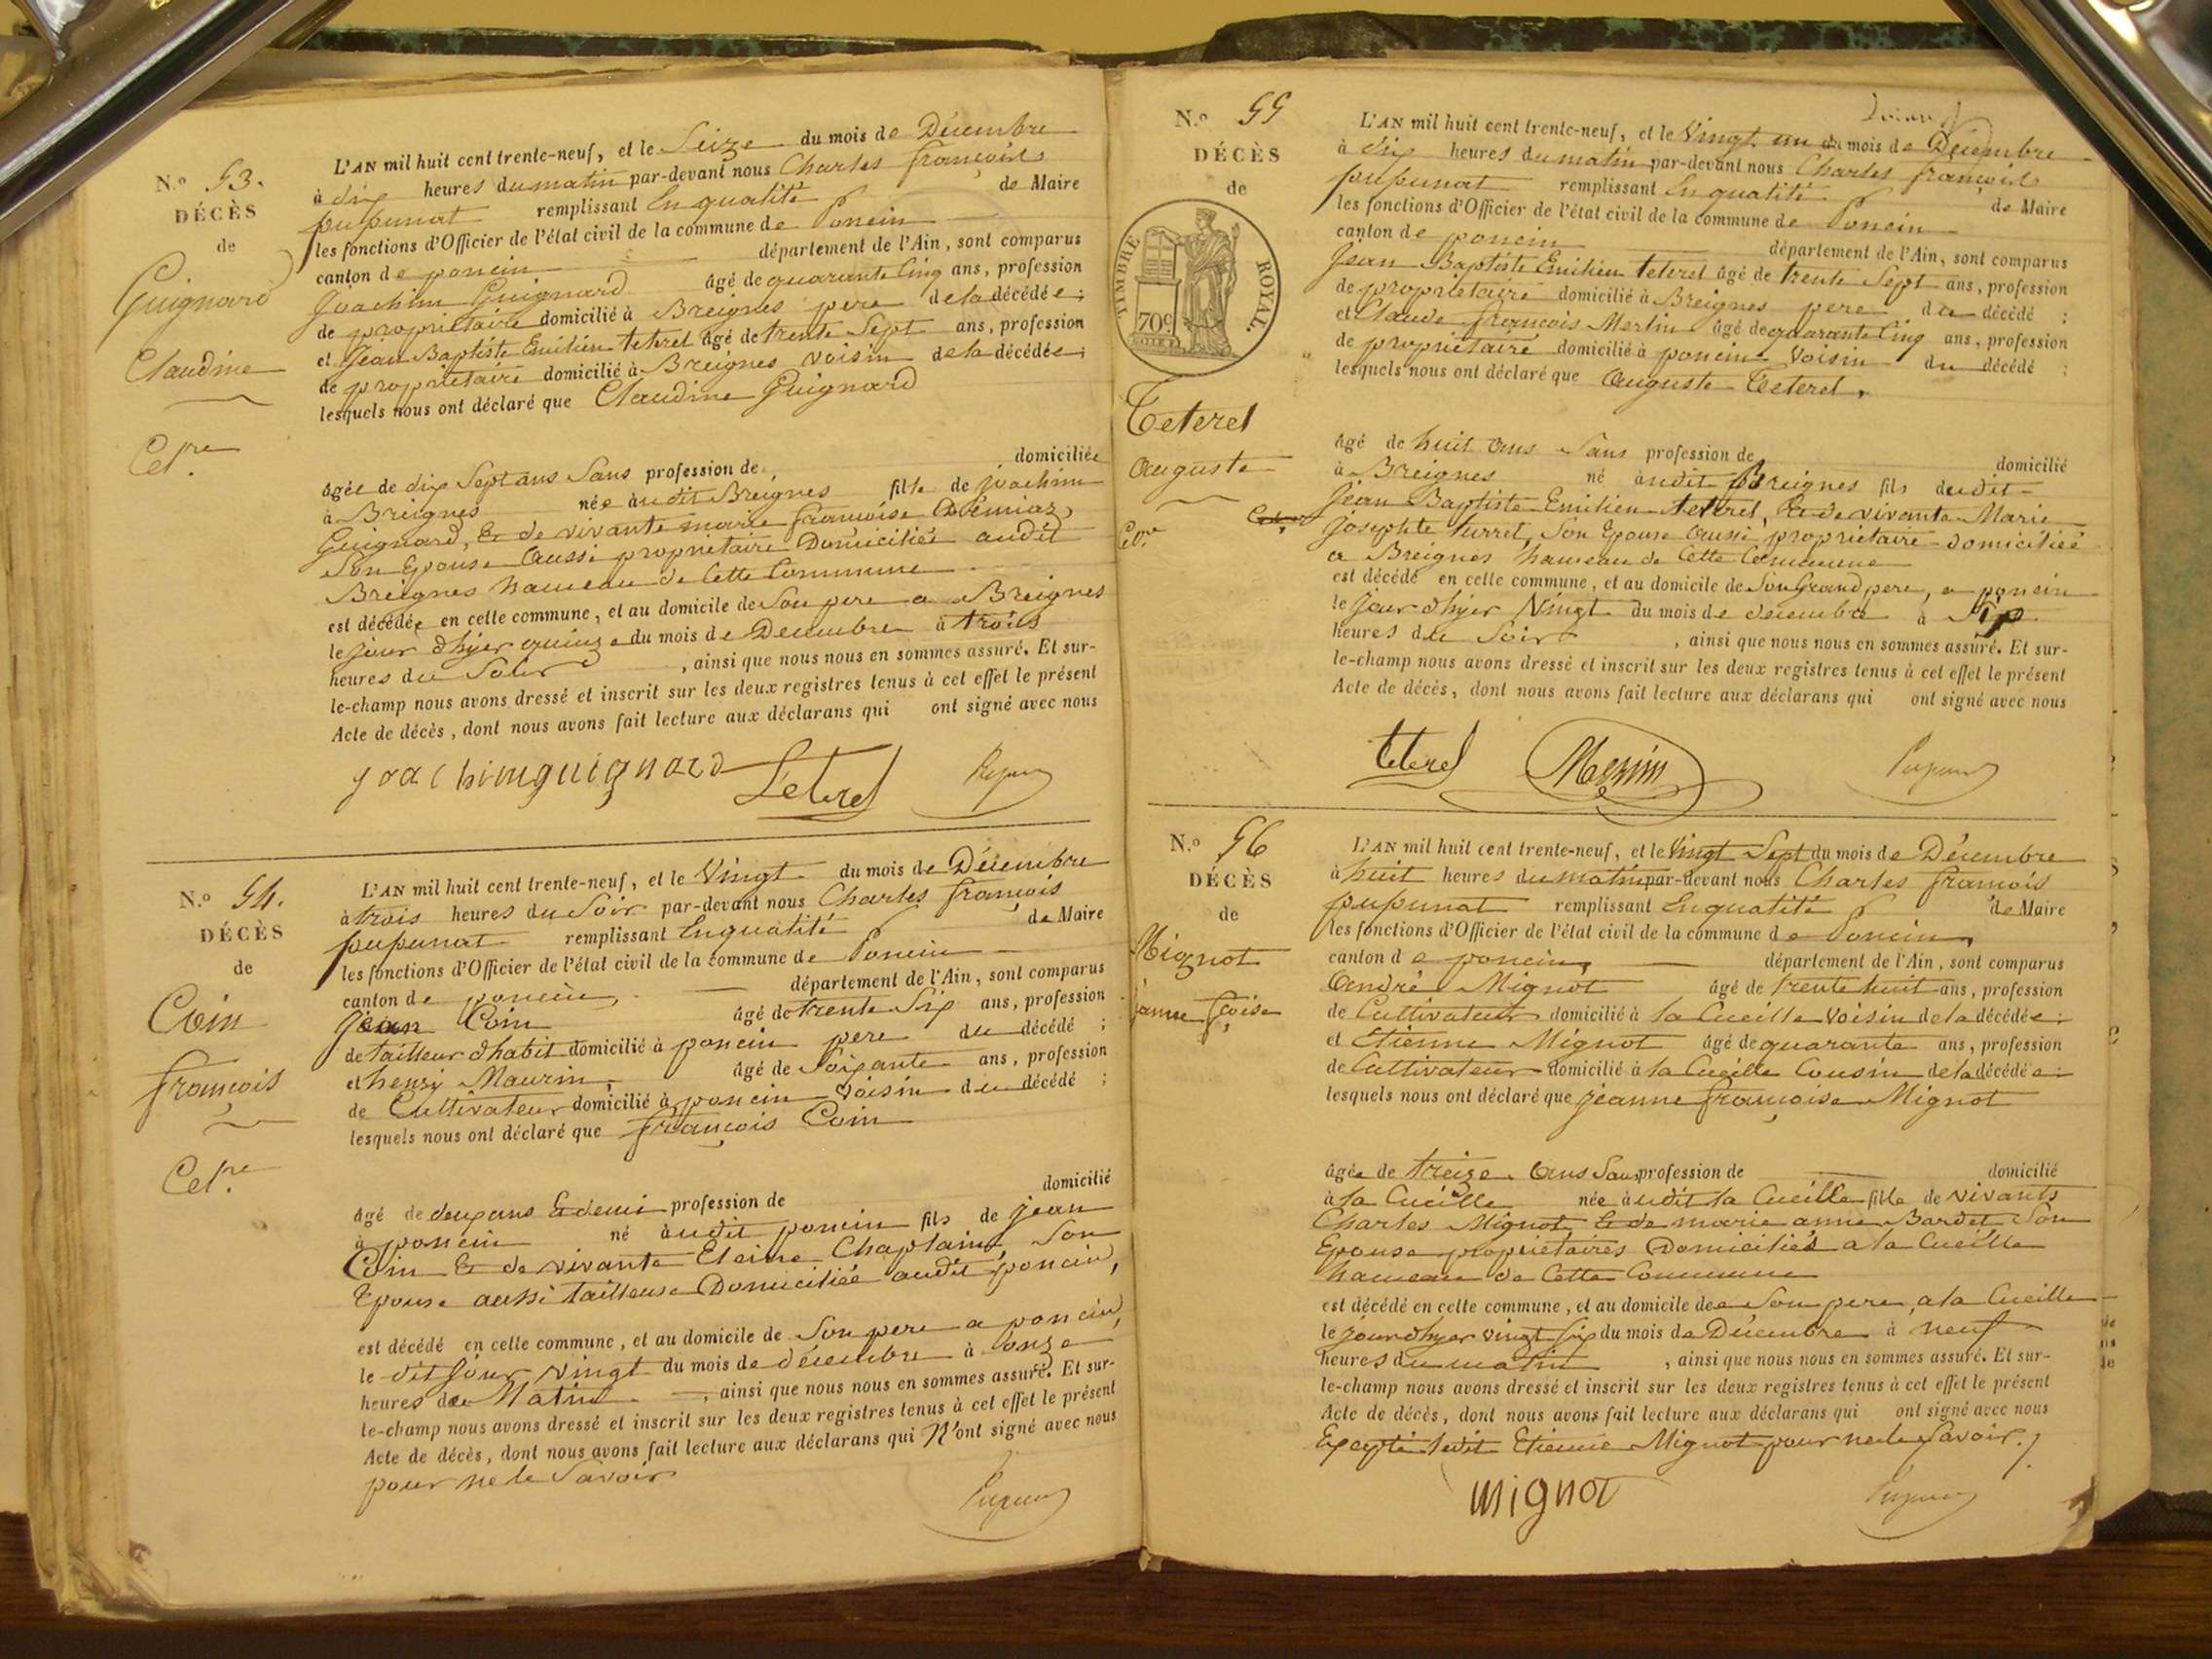 N.° 53.
DÉCÈS
de
Guignard
Claudine
Cel.re
L'AN mil huit cent trente-neuf, et le Seize du mois de Décembre
à dix heures du matin par-devant nous Charles françois
pupunat remplissant En qualité de Maire
les fonctions d'Officier de l'état civil de la commune de Poncin
canton de poncin département de l'Ain, sont comparus
Joachim Guignard âgé de quarante Cinq ans, profession
de propriétaire domicilié à Breignes pere de la décédée;
et Jean Baptiste Emilien teterel âgé de trente Sept ans, profession
de propriétaire domicilié à Breignes voisin de la décédée;
lesquels nous ont déclaré que Claudine Guignard
âgée de dix Sept ans Sans profession de domiciliée
à Breignes née audit Breignes fille de joachim
Guignard, & de vivante marie françoise
Son Epouse Aussi propriétaire Domiciliée audit
Breignes hameau de Cette Commune
est décédée en cette commune, et au domicile de Son pere a Breignes
le jour d'hyer quinze du mois de Decembre à trois
heures du Soir, ainsi que nous nous en sommes assuré. Et sur-
le-champ nous avons dressé et inscrit sur les deux registres tenus à cet effet le présent
Acte de décès, dont nous avons fait lecture aux déclarans qui ont signé avec nous
joachim guignard Teterel
N.° 54.
DÉCÈS
de
Coin
françois
Cel.re
L'AN mil huit cent trente-neuf, et le Vingt du mois de Décembre
à trois heures du Soir par-devant nous Charles françois
pupunat remplissant En qualité de Maire
les fonctions d'Officier de l'état civil de la commune de Poncin
canton de poncin, département de l'Ain, sont comparus
Jean Coin âgé de trente Six ans, profession
de tailleur d'habit domicilié à poncin pere du décédé;
et henri Maurin, âgé de Soixante ans, profession
de Cultivateur domicilié à poncin Voisin du décédé;
lesquels nous ont déclaré que françois Coin
âgé de deux ans & demi profession de domicilié
à poncin né audit poncin fils de jean
Coin & de vivante Eleine Chaplain, Son
Epouse aussi tailleuse Domiciliée audit poncin,
est décédé en cette commune, et au domicile de Son pere a poncin,
le dit jour vingt du mois de décembre à onze
heures du Matin, ainsi que nous nous en sommes assuré. Et sur-
le-champ nous avons dressé et inscrit sur les deux registres tenus à cet effet le présent
Acte de décès, dont nous avons fait lecture aux déclarans qui N'ont signé avec nous
pour ne le Savoir
N.° 55
DÉCÈS
de
TIMBRE ROYAL.
70c
Teterel
Auguste
Cel.re
L'AN mil huit cent trente-neuf, et le Vingt un du mois de Décembre
à dix heures du matin par-devant nous Charles françois
pupunat remplissant En qualité de Maire
les fonctions d'Officier de l'état civil de la commune de Poncin
canton de poncin département de l'Ain, sont comparus
Jean Baptiste Emilien teterel âgé de trente Sept ans, profession
de propriétaire domicilié à Breignes pere du décédé;
et Claude françois Merlin âgé de quarante Cinq ans, profession
de propriétaire domicilié à poncin Voisin du décédé;
lesquels nous ont déclaré que Auguste Teterel,
âgé de huit ans Sans profession de domicilié
à Breignes né audit Breignes fils dudit
Jean Baptiste Emilien teterel, & de vivante Marie
josephte turrel, Son Epouse Aussi propriétaire domiciliée
a Breignes hameau de Cette Commune
est décédé en cette commune, et au domicile de Son Grand pere, a poncin
le jour d'hyer Vingt du mois de decembre à Six
heures du Soir, ainsi que nous nous en sommes assuré. Et sur-
le-champ nous avons dressé et inscrit sur les deux registres tenus à cet effet le présent
Acte de décès, dont nous avons fait lecture aux déclarans qui ont signé avec nous
teterel
N.° 56
DÉCÈS
de
Mignot
janne fçoise
L'AN mil huit cent trente-neuf, et le Vingt Sept du mois de Décembre
à huit heures du matin par-devant nous Charles françois
pupunat remplissant En qualité de Maire
les fonctions d'Officier de l'état civil de la commune de Poncin,
canton de poncin, département de l'Ain, sont comparus
André Mignot âgé de trente huit ans, profession
de Cultivateur domicilié à la Cueille Voisin de la décédée;
et Etienne Mignot âgé de quarante ans, profession
de Cultivateur domicilié à la Cueille Cousin de la décédée;
lesquels nous ont déclaré que jeanne françoise Mignot
âgée de treize Ans Sans profession de domicilié
à la Cueille née audit la Cueille fille de vivants
Charles Mignot & de marie anne Bardet Son
Epouse propriétaires Domiciliés a la Cueille
hameau de Cette Commune
est décédé en cette commune, et au domicile de Son pere, a la Cueille
le jour d'hyer vingt Six du mois de Décembre à neuf
heures du matin, ainsi que nous nous en sommes assuré. Et sur-
le-champ nous avons dressé et inscrit sur les deux registres tenus à cet effet le présent
Acte de décès, dont nous avons fait lecture aux déclarans qui ont signé avec nous
Excepté ledit Etienne Mignot pour ne le Savoir.
mignot